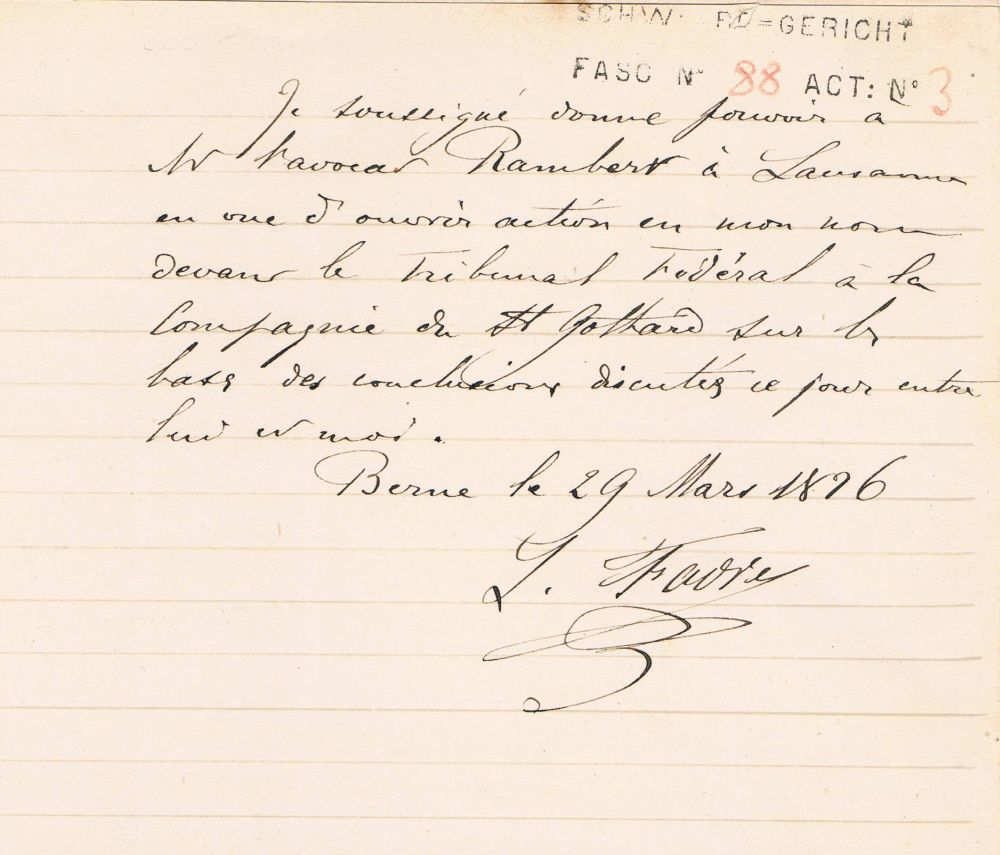 SCHW. BD=GERICHT
FASC Nº 88 ACT: Nº 3
Je soussigné donne pouvoir a
Mr l'avocat Rambert à Lausanne
en vue d'ouvrir action en mon nom
devant le Tribunal Fédéral à la
Compagnie du St Gothard sur la
base des conclusions discutés ce jour entre
lui et moi.
Berne le 29 Mars 1876
L. Favre